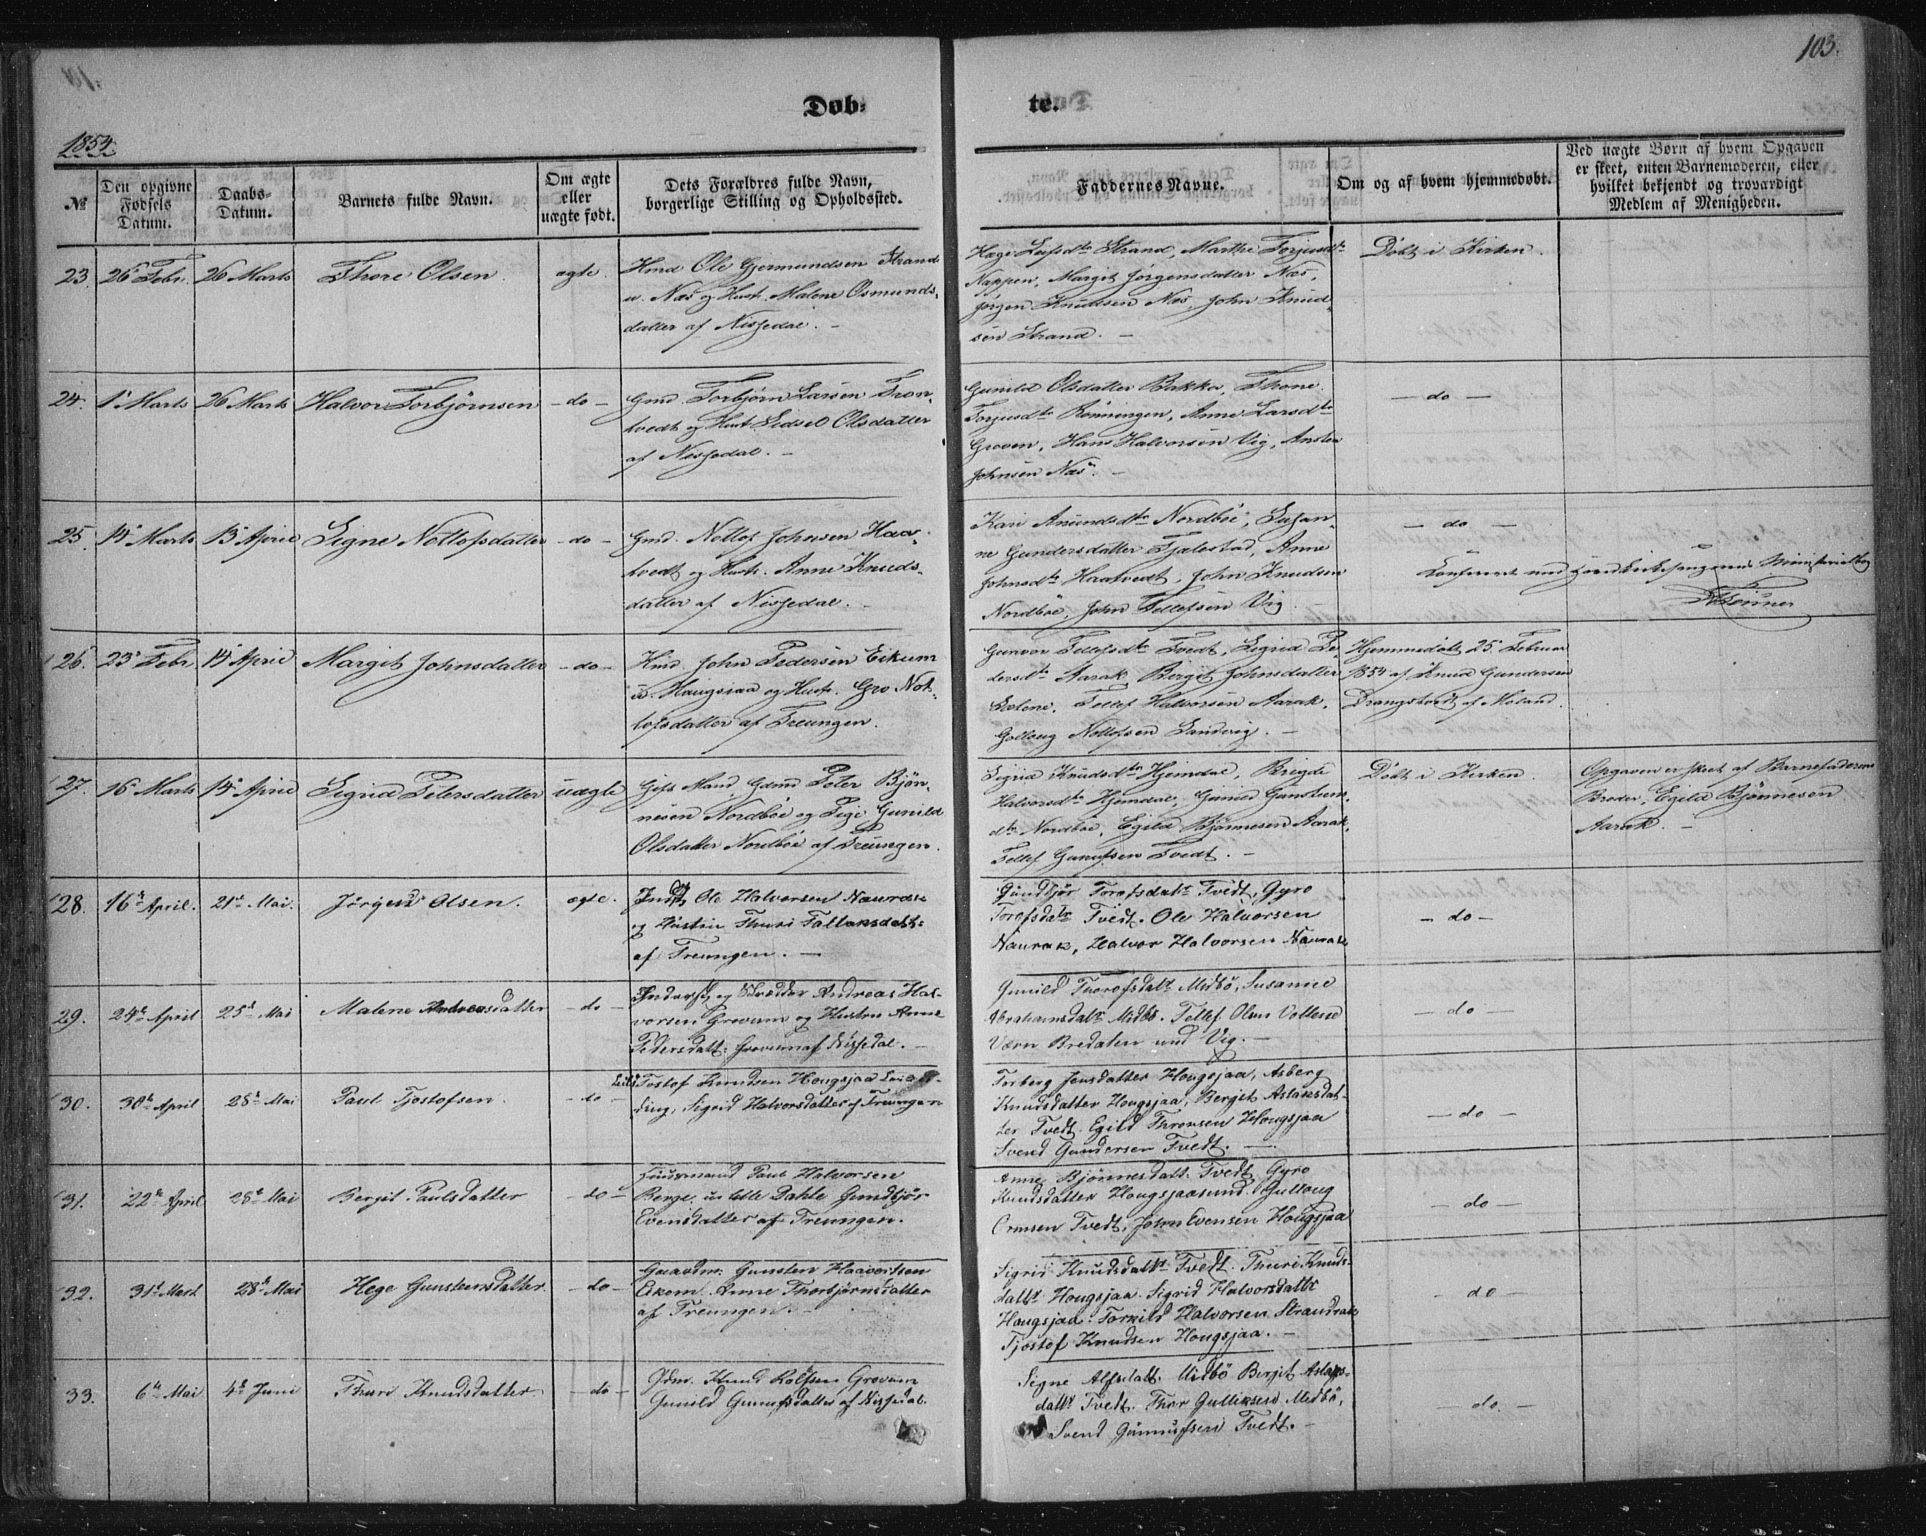 103.
Døb=
te.
1854.
№
Den opgivne
Fødsels
Datum.
Daabs=
Datum.
Barnets fulde Navn.
Om ægte
eller
uægte født.
Dets Forældres fulde Navn,
borgerlige Stilling og Opholdssted.
Faddernes Navne.
Om og af hvem hjemmedøbt.
Ved uægte Børn af hvem Opgaven
er skeet, enten Barnemoderen, eller
hvilket bekjendt og troværdigt
Medlem af Menigheden.
23. 26 Febr. 26 Marts Thore Olsen ægte.
Hmd Ole Gjermundsen Strand
u. Næs og Hust. Malene Osmunds-
datter af Nissedal. -
Hæge Leifsdtr Strand, Marthe Torjusdtr
Nappen, Margit Jørgensdatter Næs,
Jørgen Knudsen Næs, John Knud-
sen Strand. -
Døbt i Kirken.
24. 1 Marts 26 Marts Halvor Torbjørnsen - do -
Gmd. Torbjørn Larsen Tron-
tvedt og Hust. Sidsel Olsdatter
af Nissedal. -
Gunild Olsdatter Bakka, Thone
Torjusdtr Rønningen, Anne Larsdtr
Groven, Hans Halvorsen Vig, Ansten
Johnsen Næs. -
- do -
25. 14 Marts 13 April Signe Nottofsdatter - do -
Gmd. Nottof Johnsen Haa-
tvedt og Hustr. Anne Knuds-
datter af Nissedal. -
Kari Anundsdtr Nordbøe, Susan-
ne Gundersdatter Fjalestad, Anne
Johnsdtr Haatvedt, John Knudsen
Nordbøe, John Tellefsen Vig.
- do -
Confereret med Ministerialbog
26. 23 Febr 14 April Margit Johnsdatter - do -
Hmd. John Pedersen Eikum
u. Haugsjaa og Hustr. Gro Not-
tofsdatter af Treungen.
Gunvor Tellefsdtr Tvedt, Sigrid Pe-
dersdtr Aarak, Bergit Johnsdatter
Tellef Halvorsen Aarak,
Golloug Nottofsen Sandvig. -
Hjemmedøbt 25 Februar
1854 af Knud Gundersen
Drangstvedt af Moland.
27. 16 Marts 14 April Sigrid Petersdatter uægte
Gift Mand, Gdmd Peter Bjøn-
nesen Nordbøe og Pige Gunild
Olsdatter Nordbøe af Treungen.
Sigrid Knudsdtr Hjemdal, Brigde
Halvorsdtr Hjemdal, Gunild Gunstens-
dtr Nordbøe, Egild Bjønnesen Aarak,
Tellef Gunulfsen Tvedt. -
Døbt i Kirken
Opgaven er skeet af Barnefaderens
Broder, Egild Bjønnesen
Aarak. -
28. 16de April. 21de Mai. Jørgen Olsen. ægte.
Inds. Ole Halvorsen Naurak
og Hustru Thuri Tallaksdatt.
af Treungen. -
Gundbjør Torofsdatr Tvedt, Gyro
Torofsdatr Tvedt. Ole Halvorsen
Naurak, Halvor Halvorsen Naurak
- do -
29. 24de April 25de Mai Malene Andreasdatter - do -
Inderst og Skrædder Andreas Hal-
vorsen Grovum og Hustru Anne
Pedersdatt. Grovum af Nissedal. -
Gunild Thorofsdatr Midbö, Susanne
Abrahamsdatr Midbö. Tellef Olsen Vollene
Værn Bredalen und Vig. -
- do -
30. 30te April 28de Mai Paul Tjostofsen. - do -
Tostof Knudsen Hougsjaa
Sigrid Halvorsdatter af Treungen
Torberg Jensdatter Hougsjaa, Asberg
Knudsdatter Hougsjaa, Bergit Aslaksdat-
ter Tvedt. Egild Thronsen Hougsjaa
Svend Gundersen Tvedt. -
- do -
31. 22de April 28de Mai Bergit Paulsdatter - do -
Huusmand Paul Halvorsen
Berge u. lille Dahle Gundbjör
Evensdatter af Treungen.
Anne Bjönnesdatt. Tvedt, Gyro
Knudsdatter Hougsjaasund. Gulloug
Ormsen Tvedt, John Evensen Hougsjaa
- do -
32. 31te Mart 28de Mai Hege Gunstensdatter - do -
Gaardm. Gunsten Haavorsen
Eikom. Anne Thorbjörnsdatter
af Treungen. -
Sigrid Knudsdatr Tvedt. Thuri Knuds-
datr Hougsjaa. Sigrid Halvorsdatr
Hougsjaa. Tarald Halvorsen Straurak
Tjostof Knudsen Hougsjaa. -
- do -
33. 6te Mai 4de Juni Thuri Knudsdatter. - do -
Gdm. Knud Rolfsen Grovum
Gunild Gunulfsdatter af Nissedal.
Signe Alfsdatt. Midbö Bergit Aslaks-
datr Tvedt. Thor Gulliksen Midbö,
Svend Gunnulfsen Tvedt. -
- do. -